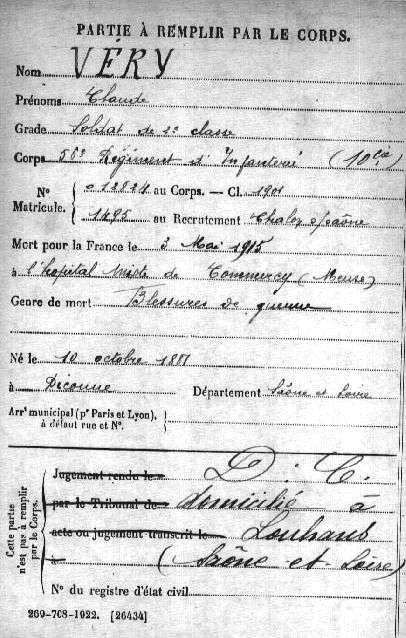 PARTIE À REMPLIR PAR LE CORPS.
Nom VERY
Prénoms Claude
Grade Soldat de 2e classe
Corps 56e Régiment d'Infanterie (10e Cie)
N° Matricule. { 012824 au Corps. — Cl. 1901
1495 au Recrutement Chalon s/Saône
Mort pour la France le 3 Mai 1915
à l'hôpital mixte de Commercy (Meuse)
Genre de mort Blessures de guerre
Né le 10 octobre 1881
à Diconne Département Saône et Loire
Arr^t municipal (p^r Paris et Lyon), à défaut rue et N°.
Cette partie n'est pas à remplir par le Corps.
Jugement rendu le D. C.
par le Tribunal de domicilié à
acte ou jugement transcrit le Louhans
à (Saône et Loire)
N° du registre d'état civil
269-708-1922. [26434]